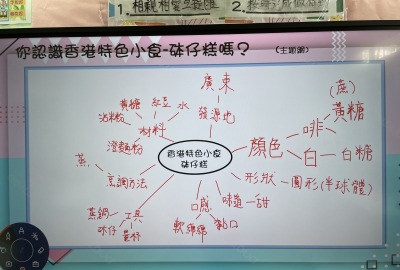 你認識香港特色小食-砵仔糕嗎？
(主題網)
香港特色小食
砵仔糕
廣東
發源地
黃糖
紅豆
水
沾米粉
材料
澄麵粉
蒸
烹調方法
蒸鍋
工具
砵仔
量杯
口感
軟綿綿
黏口
味道—甜
形狀—圓形(半球體)
顏色
啡
(蔗)
黃糖
白—白糖